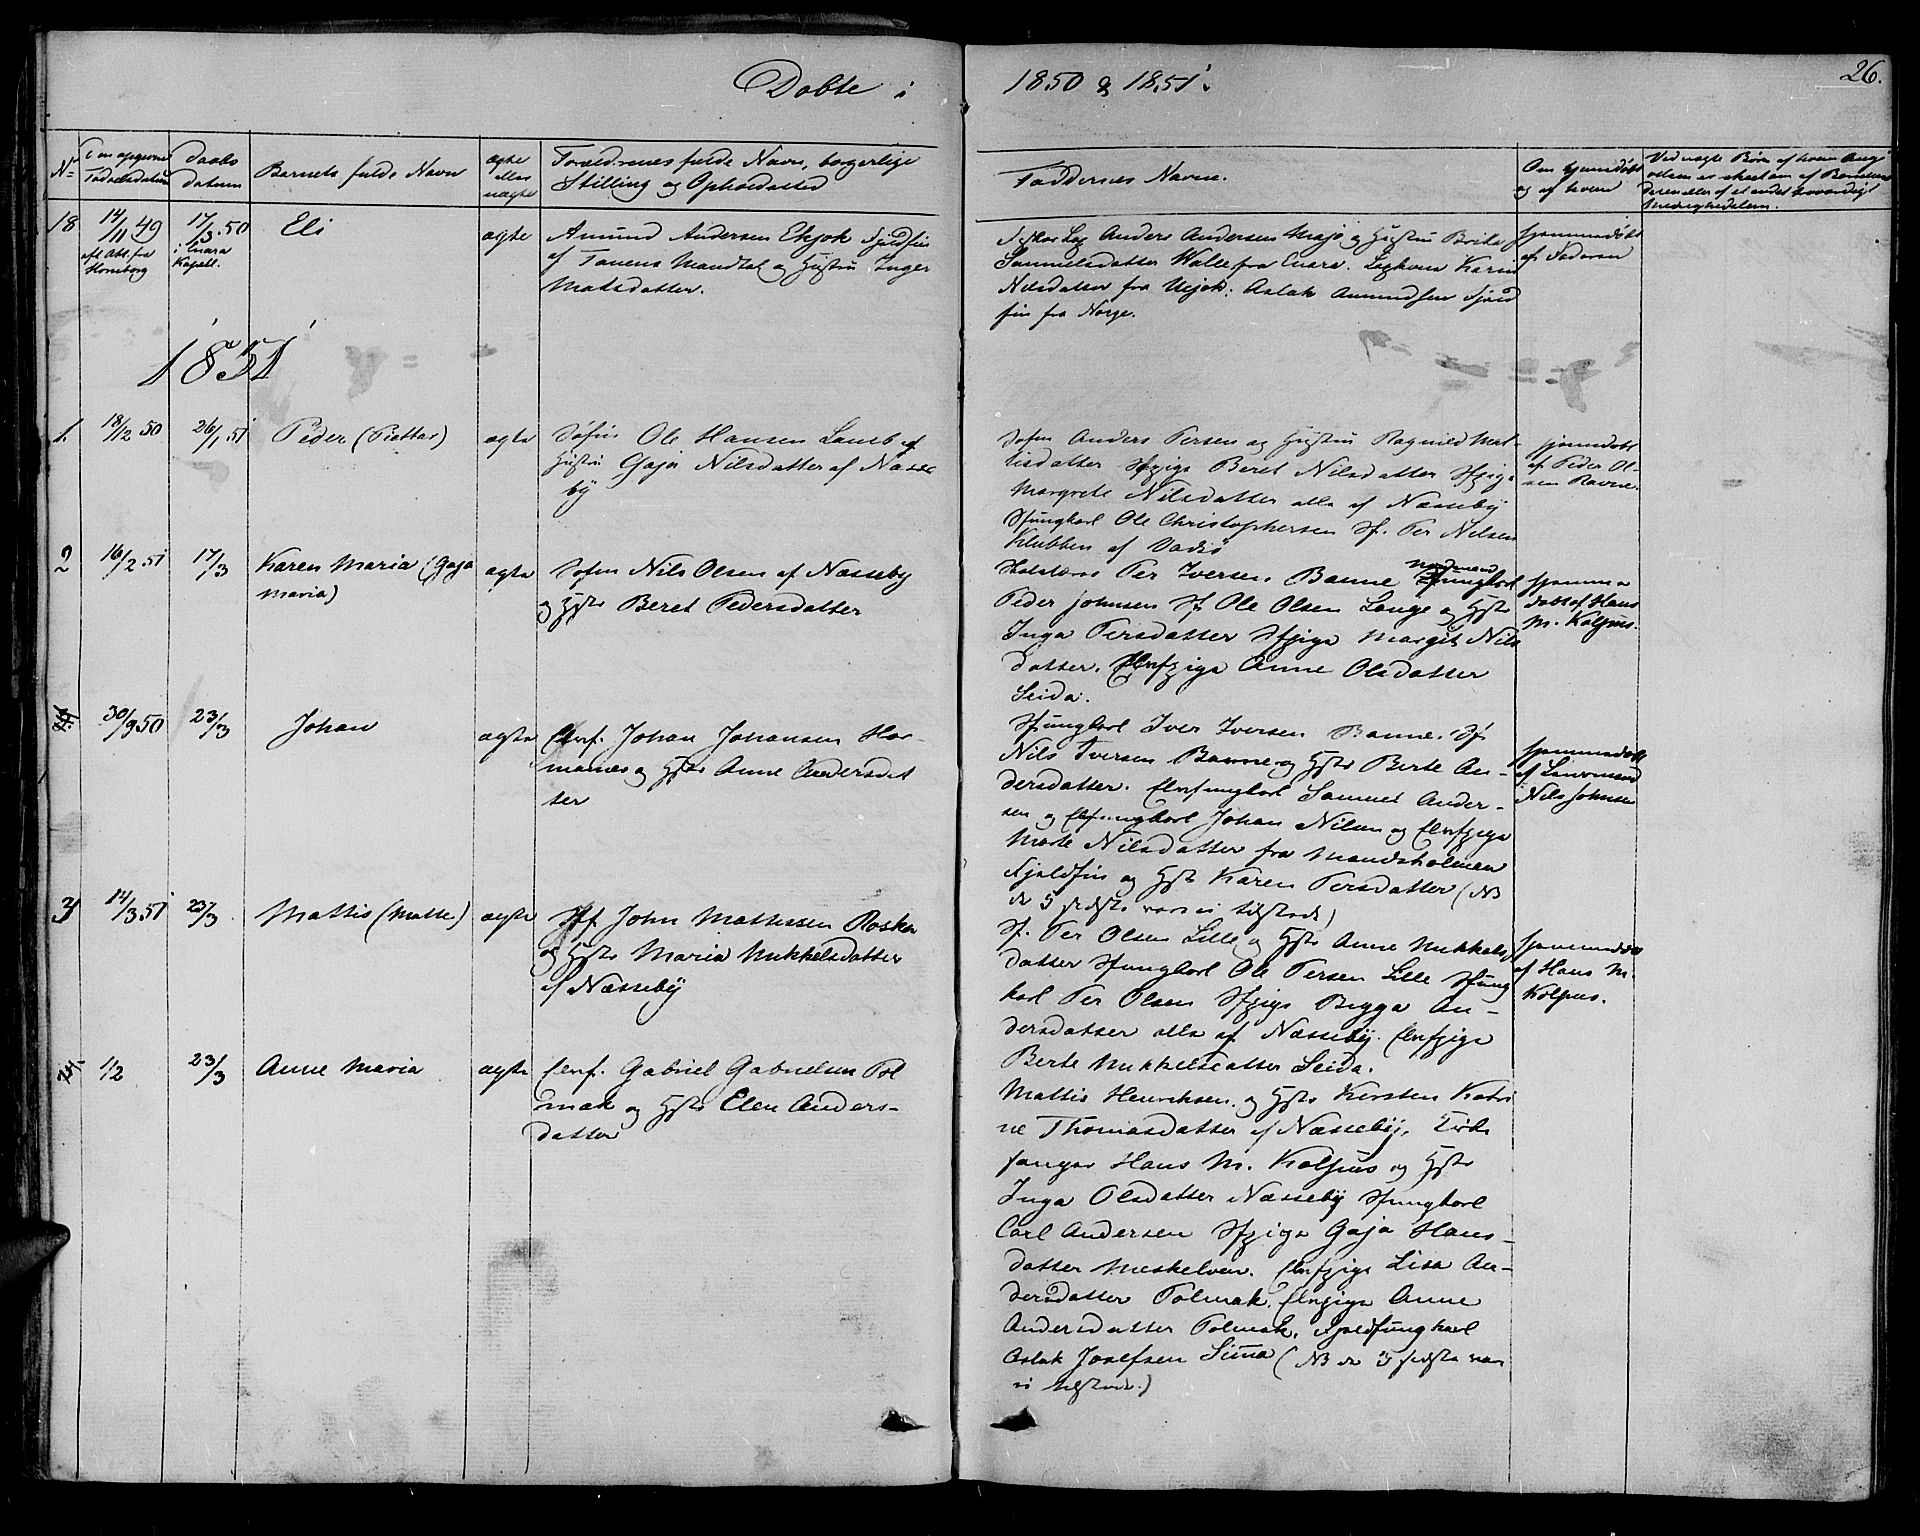 Døbte i 1850 & 1851.
26.
No
Den opgivne Fødselsdatum
Daabs datum
Barnets fulde Navn
ægte eller uægte
Forældrenes fulde Navn, borgerlige
Stilling og Opholdssted
Faddernes Navne.
Om hjemmedøbt
og af hvem
Ved uægte Børn af hvem
18
14/11 49
17/3.50
i Enara
Kapell.
Eli
ægte
Amund Andersen Ekjok Fjeldfin
af Tanens Mandtal og Hustru Inger
Matsdatter.
Anders Andersen Majo og Hustru Brita
Samuelsdatter Walle fra Enara. Karin
Nilsdatter fra Utsjok; Aslak Amundsen Fjeld
fin fra Norge.
hjemmedøbt
af Faderen
1851
1.
18/12 50
26/1 51
Peder (Piettar)
ægte
Søfin Ole Hansen
Hustru Gaja Nilsdatter af Næsse
by
Søfin Anders Persen og Hustru Ragnild Mat-
tisdatter Sfpige Beret Nilsdatter Sfpige
Margrete Nilsdatter alle af Næsseby
Sfungkarl Ole Christophersen Sf. Per Nilsen
Klubben af Vadsø
hjemmedøbt
af Peder Ol-
sen Ravne.
2
16/2 51
17/3
Karen Maria (Gaja
Maria)
ægte
Søfin Nils Olsen af Næsseby
og Hstr Beret Pedersdatter
Per Iversen Banne
Peder Johnsen Sf Ole Olsen Lange og Hstr
Inga Persdatter Sfpige Margit Nils
datter. Elvfpige Anne Olsdatter
Seida.
hjemme
døbt af Hans
M. Kolpus.
30/9 50
23/3
Johan
ægte
Elvf. Johan Johansen Hor-
manes og Hstr Anne Andersdat
ter
Sfungkarl Iver Iversen Banne. Sf.
Nils Iversen Banne og Hstr Berte An-
dersdatter. Elvfungkarl Samuel Ander-
sen og Elvfungkarl Johan Nilsen og Elvfpige
Marte Nilsdatter fra Mandsholmen
Fjeldfin og Hstr Karen Persdatter (NB
de 5 sidste vare ei tilstede)
hjemmedøbt
af Lensmand
Nils Johnsen
3
14/3 51
23/3
Mattis (Matte)
ægte
Sf. John Mathissen Roska
og Hstr Maria Mikkelsdatter
af Næsseby
Sf. Per Olsen Lille og Hstr Anne Mikkels
datter Sfungkarl Ole Persen Lille Sfung
karl Per Olsen Sfpige Bigga An-
dersdatter alle af Næsseby. Elvfpige
Berte Mikkelsdatter Seida.
hjemmedøbt
af Hans M.
Kolpus.
1/2
23/3
Anne Maria
ægte
Elvf. Gabriel Gabrielsen Pol
mak og Hstr Elen Anders-
datter
Mattis Henriksen og Hstr Kirsten Katri
ne Thomasdatter af Næsseby, Kirke
sanger Hans M. Kolpus og Hstr
Inga Olsdatter Næsseby Sfungkarl
Carl Andersen Sfpige Gaja Hans-
datter Meskelven. Elvfpige Lisa An-
dersdatter Polmak. Elvfpige Anne
Andersdatter Polmak. Fjeldfungkarl
Aslak Josefsen Sima (NB de 3 sidste vare
ei tilstede.)